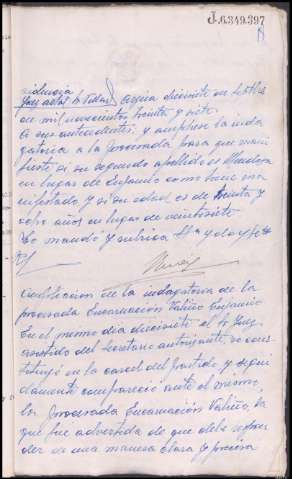 J.6349397
Juez actal Sr Vidal Cogina diecisiete de
de mil novecientos treinta y siete.
A sus antecedentes, y ampliese la inda
gatoria a la procesada para que mani
fieste, si su segundo apellido es Mendoza
en lugar de Eugenio como tiene ma
nifestado, y si su edad es de treinta y
ocho años en lugar de veintisiete
Lo mandó y rubrica Sª y doy fe
de la indagatoria de la
procesada Encarnación Valiño Eugenio
En el mismo día diecisiete el Sr Juez
asistido del Secretario autorizante se cons
tituyó en la carcel del Partido y segui
damente compareció ante el mismo,
la procesada Encarnación Valiño, la
que fué advertida de que debe respon
der de una manera clara y precisa